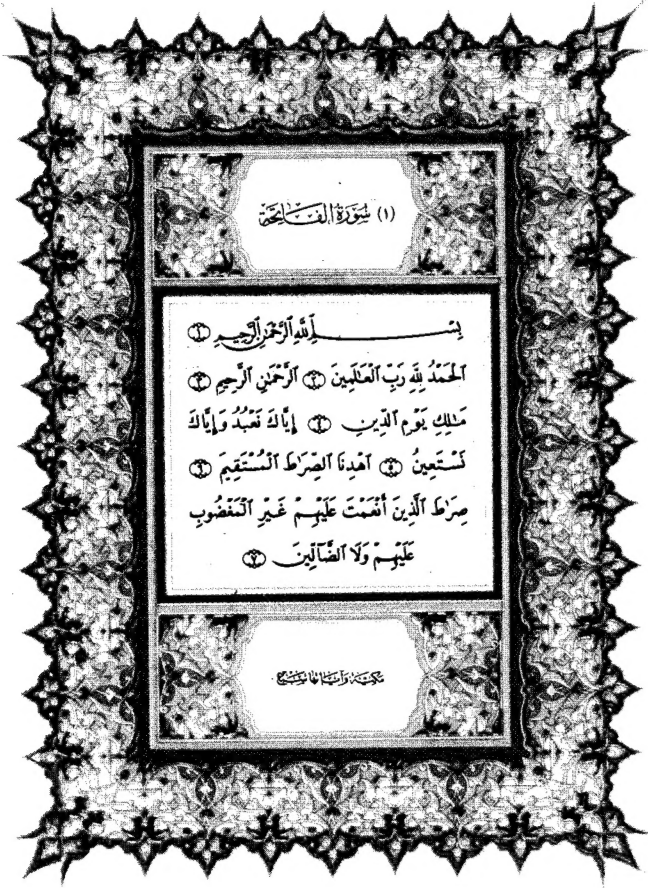 (١) سُورَةُ الفَاتِحَة
بِسْمِ ٱللَّهِ ٱلرَّحْمَٰنِ ٱلرَّحِيمِ ١
ٱلْحَمْدُ لِلَّهِ رَبِّ ٱلْعَٰلَمِينَ ٢ ٱلرَّحْمَٰنِ ٱلرَّحِيمِ ٣
مَٰلِكِ يَوْمِ ٱلدِّينِ ٤ إِيَّاكَ نَعْبُدُ وَإِيَّاكَ
نَسْتَعِينُ ٥ ٱهْدِنَا ٱلصِّرَٰطَ ٱلْمُسْتَقِيمَ ٦
صِرَٰطَ ٱلَّذِينَ أَنْعَمْتَ عَلَيْهِمْ غَيْرِ ٱلْمَغْضُوبِ
عَلَيْهِمْ وَلَا ٱلضَّآلِّينَ ٧
مكيّة وآياتها سبع